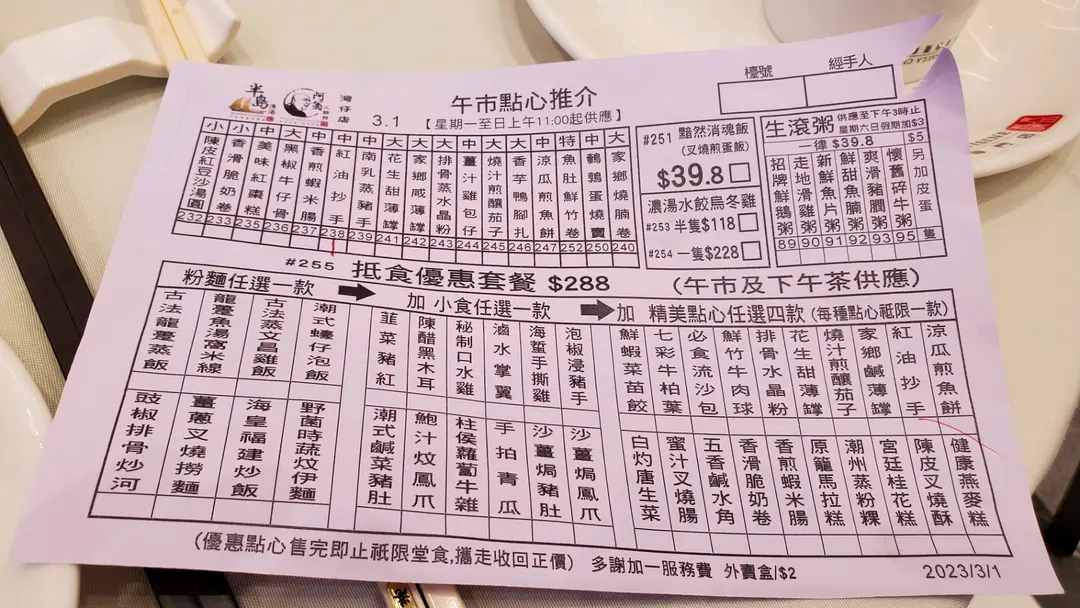 半島
灣仔店
3.1
午市點心推介
【星期一至日上午11:00起供應】
檯號
經手人
小 陳皮紅豆沙湯圓 232
小 香滑脆奶卷 233
中 美味紅棗糕 235
大 黑椒牛仔骨 236
中 香煎蝦米腸 237
中 紅油抄手 238
中 南乳蒸豬手 239
大 花生甜薄罉 241
大 家鄉咸薄罉 242
中 排骨水晶粉 243
中 鹹甘雞包仔 244
大 燒汁煎釀茄子 245
大 香芋鴨腳扎 246
中 涼瓜煎魚餅 247
特 魚肚鮮竹卷 252
中 鵪鶉蛋燒賣 250
大 家鄉燒腩卷 240
#251 黯然消魂飯
(叉燒煎蛋飯)
$39.8
濃湯水餃烏冬雞
#253 半隻$118
#254 一隻$228
生滾粥 供應至下午3時止
星期六日假期加$3
一律 $39.8
$5
招牌鮮鵝粥 89
走地滑雞粥 90
新鮮魚片粥 91
鮮甜魚腩粥 92
爽滑豬膶粥 93
懷舊碎牛粥 95
另加皮蛋 隻
#255 抵食優惠套餐 $288 (午市及下午茶供應)
粉麵任選一款
加 小食任選一款
加 精美點心任選四款(每種點心祗限一款)
古法龍躉蒸飯
龍躉魚湯窩米線
古法蒸文昌雞飯
潮式蠔仔泡飯
韮菜豬紅
陳醋黑木耳
秘制口水雞
滷水掌翼
海蜇手撕雞
泡椒浸豬手
鮮蝦菜苗餃
七彩牛柏葉
必食流沙包
鮮竹牛肉球
排骨水晶粉
花生甜薄罉
燒汁煎釀茄子
家鄉鹹薄罉
紅油抄手
涼瓜煎魚餅
豉椒排骨炒河
薑蔥叉燒撈麵
海皇福建炒飯
野菌時蔬炆伊麵
潮式鹹菜豬肚
鮑汁炆鳳爪
柱侯蘿蔔牛雜
手拍青瓜
沙薑焗豬肚
沙薑焗鳳爪
白灼唐生菜
蜜汁叉燒腸
五香鹹水角
香滑脆奶卷
香煎蝦米腸
原籠馬拉糕
潮州蒸粉粿
宮廷桂花糕
陳皮叉燒酥
健康燕麥糕
(優惠點心售完即止祗限堂食,攜走收回正價) 多謝加一服務費 外賣盒/$2
2023/3/1